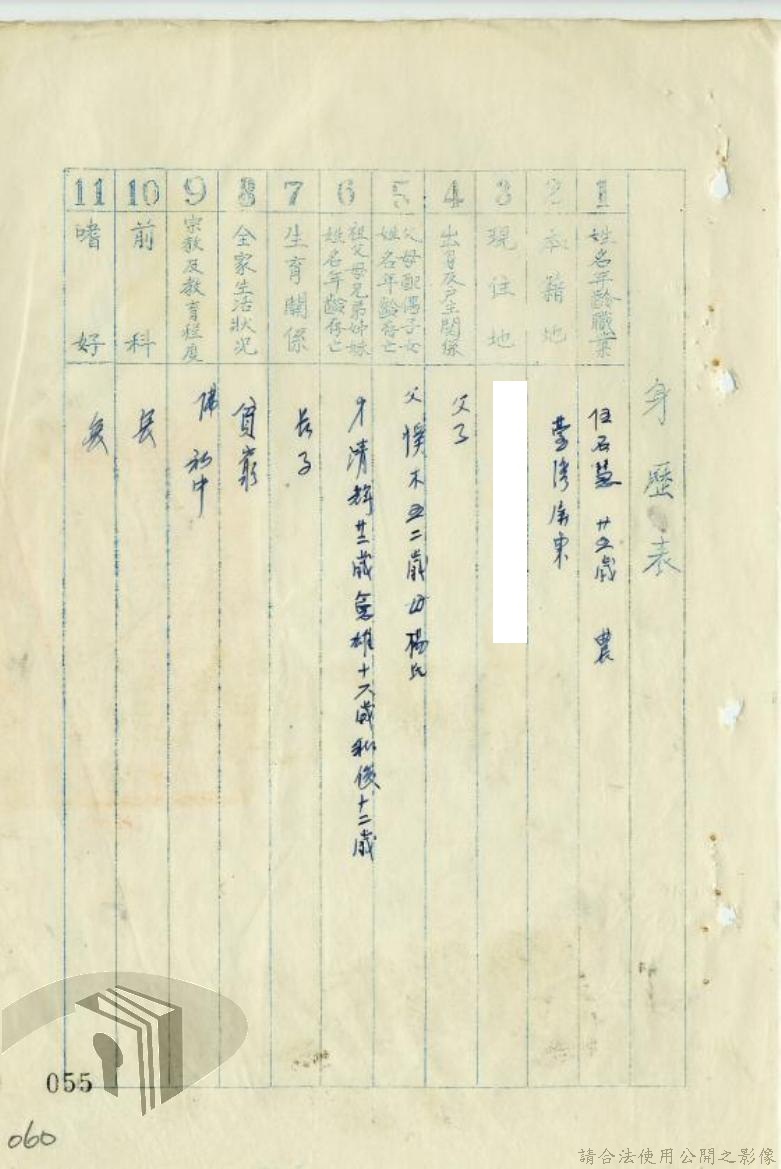 身歷表
1 姓名年齡職業
任石慧 廿五歲 農
2 本籍地
臺灣屏東
3 現住地
4 出身及戶主關係
父子
5 父母配偶子女姓名年齡存亡
父 木 五二歲 母 楊氏
6 祖父母兄弟姊妹姓名年齡存亡
清輝 廿三歲 雄 十六歲 俊 十二歲
7 生育關係
長子
8 全家生活狀况
貧窮
9 宗教及教育程度
佛 初中
10 前科
無
11 嗜好
無
055
060
請合法使用公開之影像